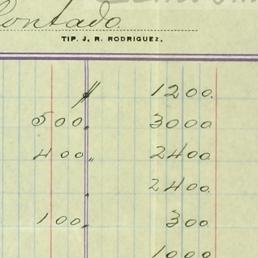 Contado.
TIP. J. R. RODRIGUEZ.
1200.
500. 3000
400. 2400
2400
100. 300
1000